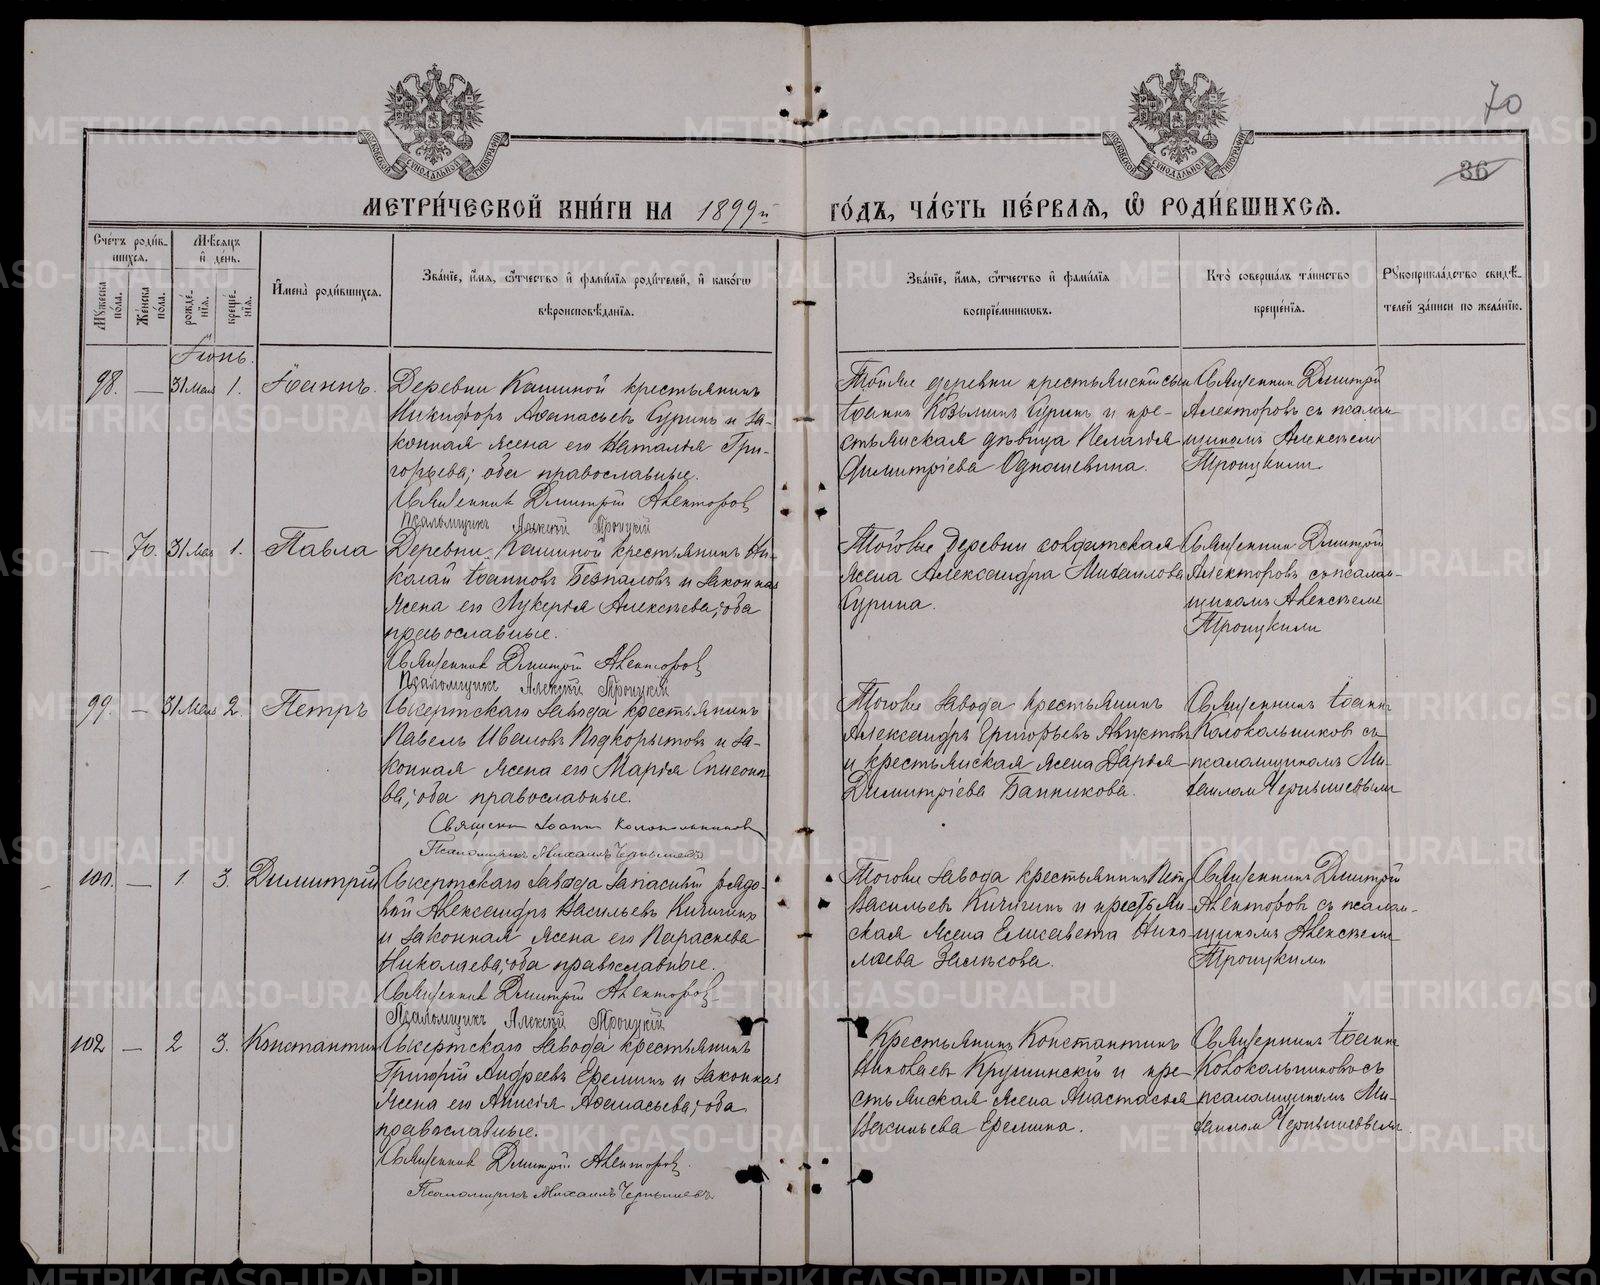 70
36
МЕТРИ́ЧЕСКОЙ КНИ́ГИ НА 1899й
ГО́ДЪ, ЧА́СТЬ ПЕ́РВАЯ, Ѡ РОДИ́ВШИХСЯ.
Сче́тъ роди́в-
шихся.
Мѣ́сяцъ
и҆ день.
Му́жеска по́ла.
Же́нска по́ла.
рожде́-
нїя.
креще́-
нїя.
И҆мена̀ роди́вшихся.
Зва́нїе, и҆́мя, ѻ҆́тчество и҆ фами́лїя роди́телей, и҆ како́гѡ
вѣроисповѣ́данїя.
Зва́нїе, и҆́мя, ѻ҆́тчество и҆ фами́лїя
воспрїе́мниковъ.
Кто̀ соверша́лъ та́инство
креще́нїя.
Рꙋкоприкла́дство свидѣ́-
телей за́писи по жела́нїю.
Іюнь.
98. — 31 Мая 1. Іоаннъ.
Деревни Кашиной крестьянинъ
Никифоръ Аѳанасьевъ Суринъ и за-
конная жена его Наталія Гри-
горьева; оба православные.
Священник Дмитрій Авенторов
Псаломщикъ Алексій Троицкій
Тойже деревни
Іоаннъ Козьминъ Суринъ и кре-
стьянская дѣвица Пелагія
Димитріева
Священникъ Дмитрій
съ псалом-
щикомъ Алексѣемъ
Троицкимъ
— 70. 31 Мая 1. Павла
Деревни Кашиной крестьянинъ Ни-
колай Іоанновъ Безпаловъ и законная
жена его Лукерія Алексѣева; оба
православные.
Священник Дмитрій
Псаломщикъ Алексій Троицкій
Тоговже деревни солдатская
жена Александра Михаилова
Сурина.
Священникъ Дмитрій
съ псалом-
щикомъ Алексѣемъ
Троицкимъ
99. — 31 Мая 2. Петръ
Сысертскаго завода крестьянинъ
Павелъ Ивановъ Подкорытовъ и за-
конная жена его Марія
ва; оба православные.
Священ Іоаннъ Колокольниковъ
Псаломщикъ Михаилъ Чернышевъ
Тогоже завода крестьянинъ
Александръ Григорьевъ Августовъ
и крестьянская жена Дарія
Димитріева Банникова.
Священникъ Іоаннъ
Колокольниковъ съ
псаломщикомъ Ми-
хаиломъ Чернышевымъ
101. — 1. 3. Димитрій
Сысертскаго завода запасный рядо-
вой Александръ Васильевъ Кичигинъ
и законная жена его Параскева
Николаева; оба православные.
Священник Дмитрій
Псаломщикъ Алексій Троицкій
Тогоже завода крестьянинъ Петр
Васильевъ Кичигинъ и крестьян-
ская жена Елисавета Нико
лаева Залѣсова.
Священникъ Дмитрій
съ псалом-
щикомъ Алексѣемъ
Троицкимъ
102 — 2 3. Константинъ
Сысертскаго завода крестьянинъ
Григорій Андреевъ Ереминъ и законная
жена его Анисія Аѳанасьева; оба
православные.
Священник Дмитрій
Псаломщикъ Михаилъ Чернышевъ
Крестьянинъ Константинъ
Николаевъ и кре-
стьянская жена Анастасія
Васильева Еремина.
Священникъ Іоаннъ
Колокольниковъ съ
псаломщикомъ Ми-
хаиломъ Чернышевымъ
METRIKI.GASO-URAL.RU